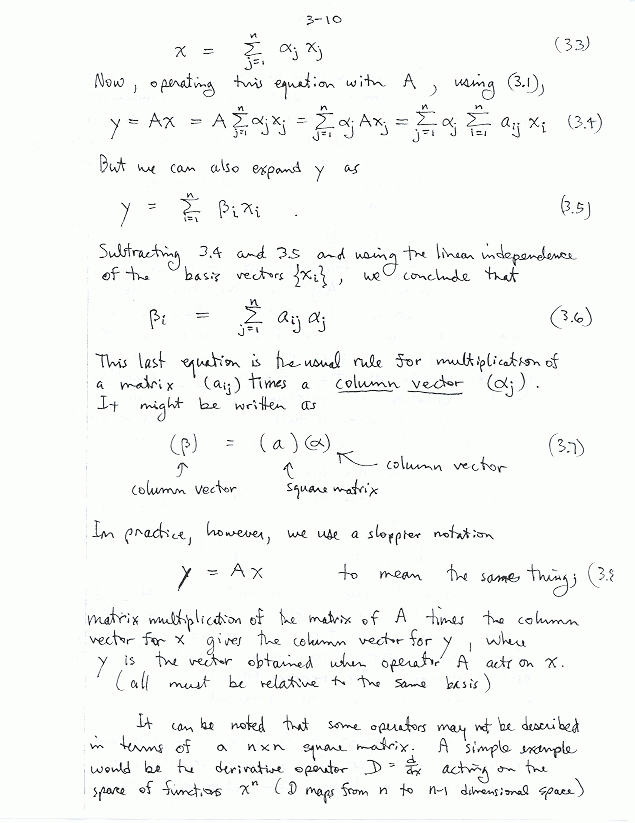 3-10
x = n Σ j=1 αj xj (3.3)
Now, operating this equation with A, using (3.1),
y = Ax = A n Σ j=1 αj xj = n Σ j=1 αj Axj = n Σ j=1 αj n Σ i=1 aij xi (3.4)
But we can also expand y as
y = n Σ i=1 βi xi . (3.5)
Subtracting 3.4 and 3.5 and using the linear independence
of the basis vectors {xi}, we conclude that
βi = n Σ j=1 aij αj (3.6)
This last equation is the usual rule for multiplication of
a matrix (aij) times a column vector (αj).
It might be written as
(β) = (a)(α) column vector (3.7)
column vector square matrix
In practice, however, we use a sloppier notation
y = Ax to mean the same thing; (3.8
matrix multiplication of the matrix of A times the column
vector for x gives the column vector for y, where
y is the vector obtained when operator A acts on x.
(all must be relative to the same basis)
It can be noted that some operators may not be described
in terms of a n×n square matrix. A simple example
would be the derivative operator D = d/dx acting on the
space of functions x^n (D maps from n to n-1 dimensional space)